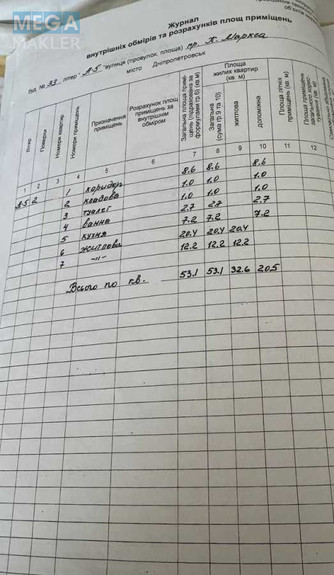 MEGA
MAKLER
Журнал
внутрішніх обмірів та розрахунків площ приміщень
буд. № 33 літер "А-5" вулиця (провулок, площа) пр. К. Маркса
місто Дніпропетровськ
Літер
Поверхи
Номери квартир
Номери приміщень
Призначення приміщень
Розрахунок площ приміщень за внутрішнім обміром
Загальна площа приміщень (підрахована за формулами гр 6) (кв. м)
Площа жилих квартир (кв. м)
Загальна (сума гр 9 та 10)
житлова
допоміжна
1 2 3 4 5 6 7 8 9 10 11 12
А-5 2 1 коридор 8.6 8.6 8.6
2 кладова 1.0 1.0 1.0
3 туалет 1.0 1.0 1.0
4 ванна 2.7 2.7 2.7
5 кухня 7.2 7.2 7.2
6 житлова 20,4 20,4 20,4
7 —"— 12.2 12.2 12.2
Всього по кв. 53.1 53.1 32.6 20.5